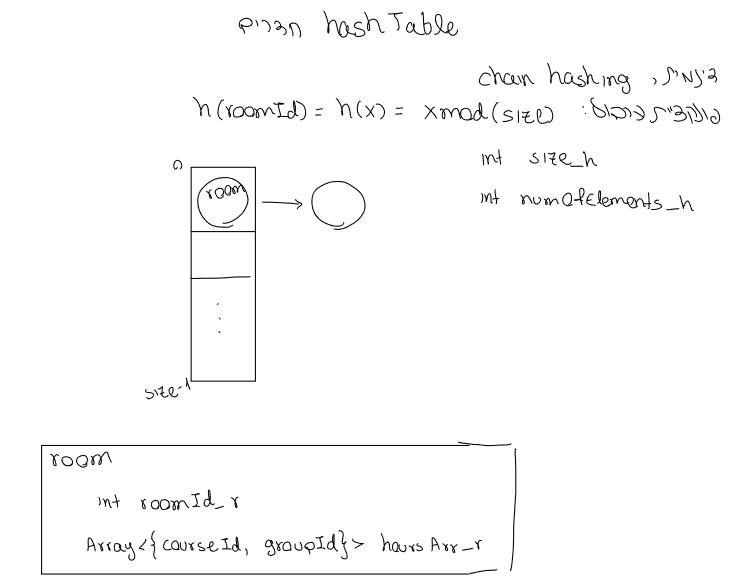 חדרים hashTable
דינמית, chain hashing
פונקציית ערבול: h(roomId) = h(x) = x mod(size)
int size_h
int numOfElements_h
0
room
size-1
room
int roomId_r
Array<{courseId, groupId}> hoursArr_r